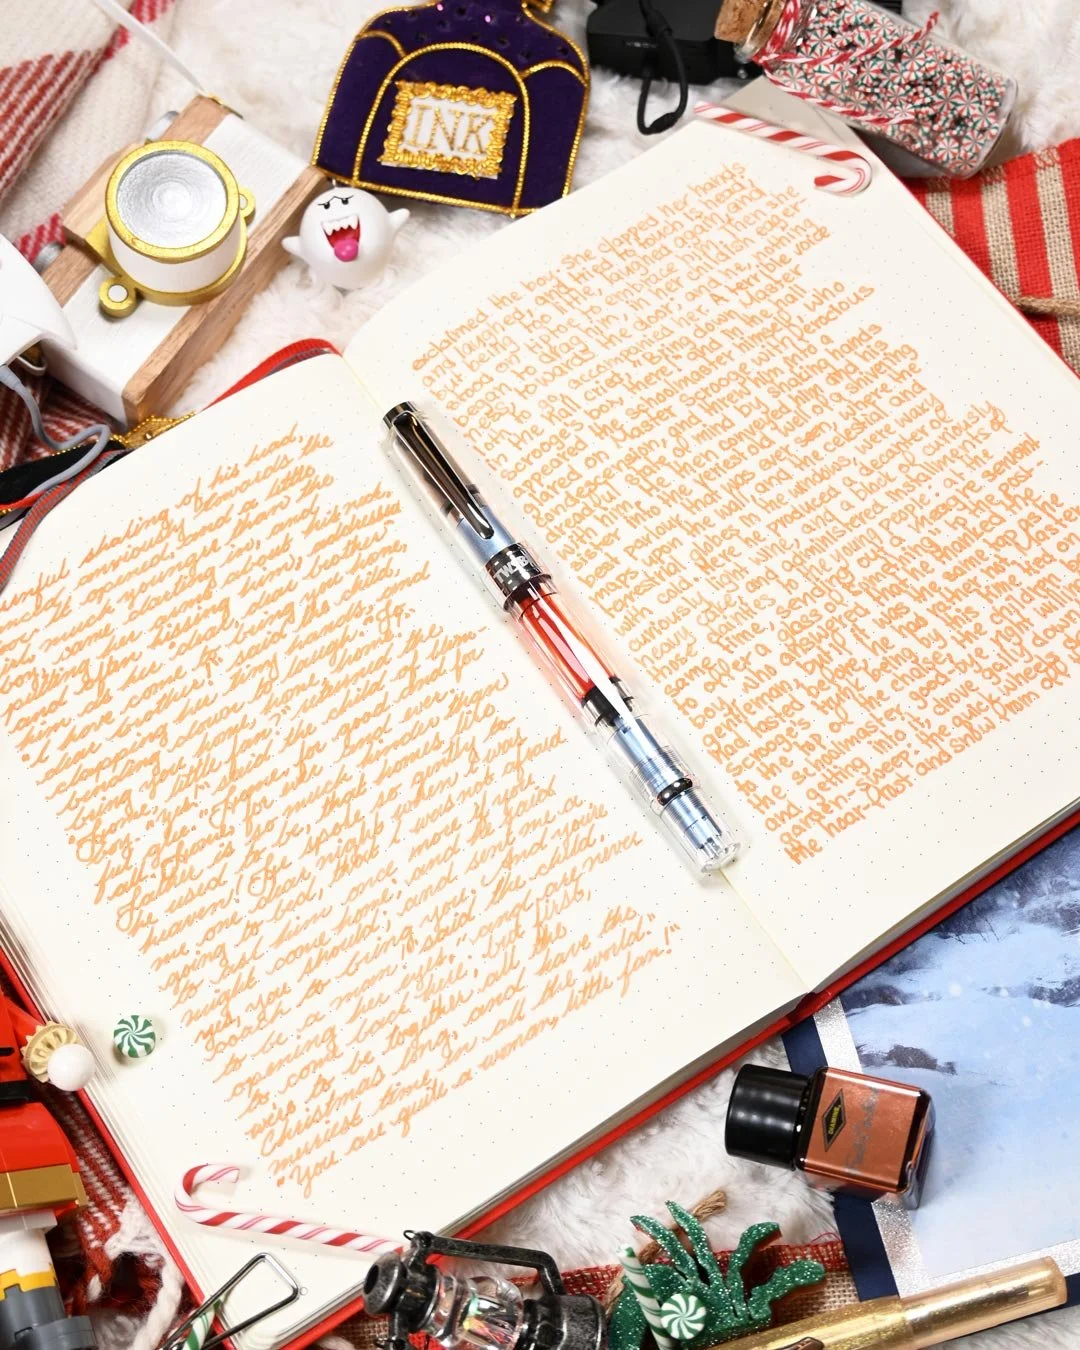 shaking of his head,
glanced anxiously towards the
door. It opened; and a little
girl, much younger than the
boy, came darting in, and
putting her arms about his neck,
and often kissing him, addressed
him as her "dear, dear brother"
"I have come to bring you home,
dear brother!" said the child,
clapping her tiny hands, and
bending down to laugh. "To
bring you home, home, home!"
"Home, little fan?" returned the
boy. "yes!" said the child, brim-
full of glee. "Home, for good and
all. Home, for ever and ever.
Father is so much kinder than
he used to be, that home's like
heaven! He spoke so gently to
me one dear night when I was
going to bed, that I was not afraid
to ask him once more if you
might come home; and he said
yes, you should; and sent me a
coach to bring you. And you're
to be a man!" said the child,
opening her eyes, "and are never
to come back here; but first,
we're to be together all the
Christmas long, and have the
merriest time in all the world."
"You are quite a woman, little fan!"
exclaimed the boy. She clapped her hands
and laughed, and tried to touch his head;
but being too little, laughed again, and
stood on tiptoe to embrace him. Then she
began to drag him, in her childish eager-
ness, towards the door; and he, nothing
loth to go, accompanied her. A terrible voice
in the hall cried, "Bring down Master
Scrooge's box, there!" and in the hall
appeared the schoolmaster himself, who
glared on Master Scrooge with a ferocious
condescension, and threw him into a
dreadful state of mind by shaking hands
with him. He then conveyed him and his
sister into the veriest old well of a shivering
best parlour that was ever seen, where the
maps upon the wall and the celestial and
terrestrial globes in the windows, were waxy
with cold. Here he produced a decanter of
curiously light wine, and a block of curiously
heavy cake, and administered installments of
those dainties to the young people: at the
same time, sending out a meagre servant
to offer a glass of something to the post-
boy, who answered that he thanked the
gentleman, but if it was the same tap as he
had tasted before, he had rather not. Master
Scrooge's trunk being by this time tied on
to the top of the chaise, the children bade
the schoolmaster good-bye right willingly
and getting into it, drove gaily down the
garden-sweep: the quick wheels dashing
the hoar-frost and snow from off
INK
TWSBI
DIAMINE